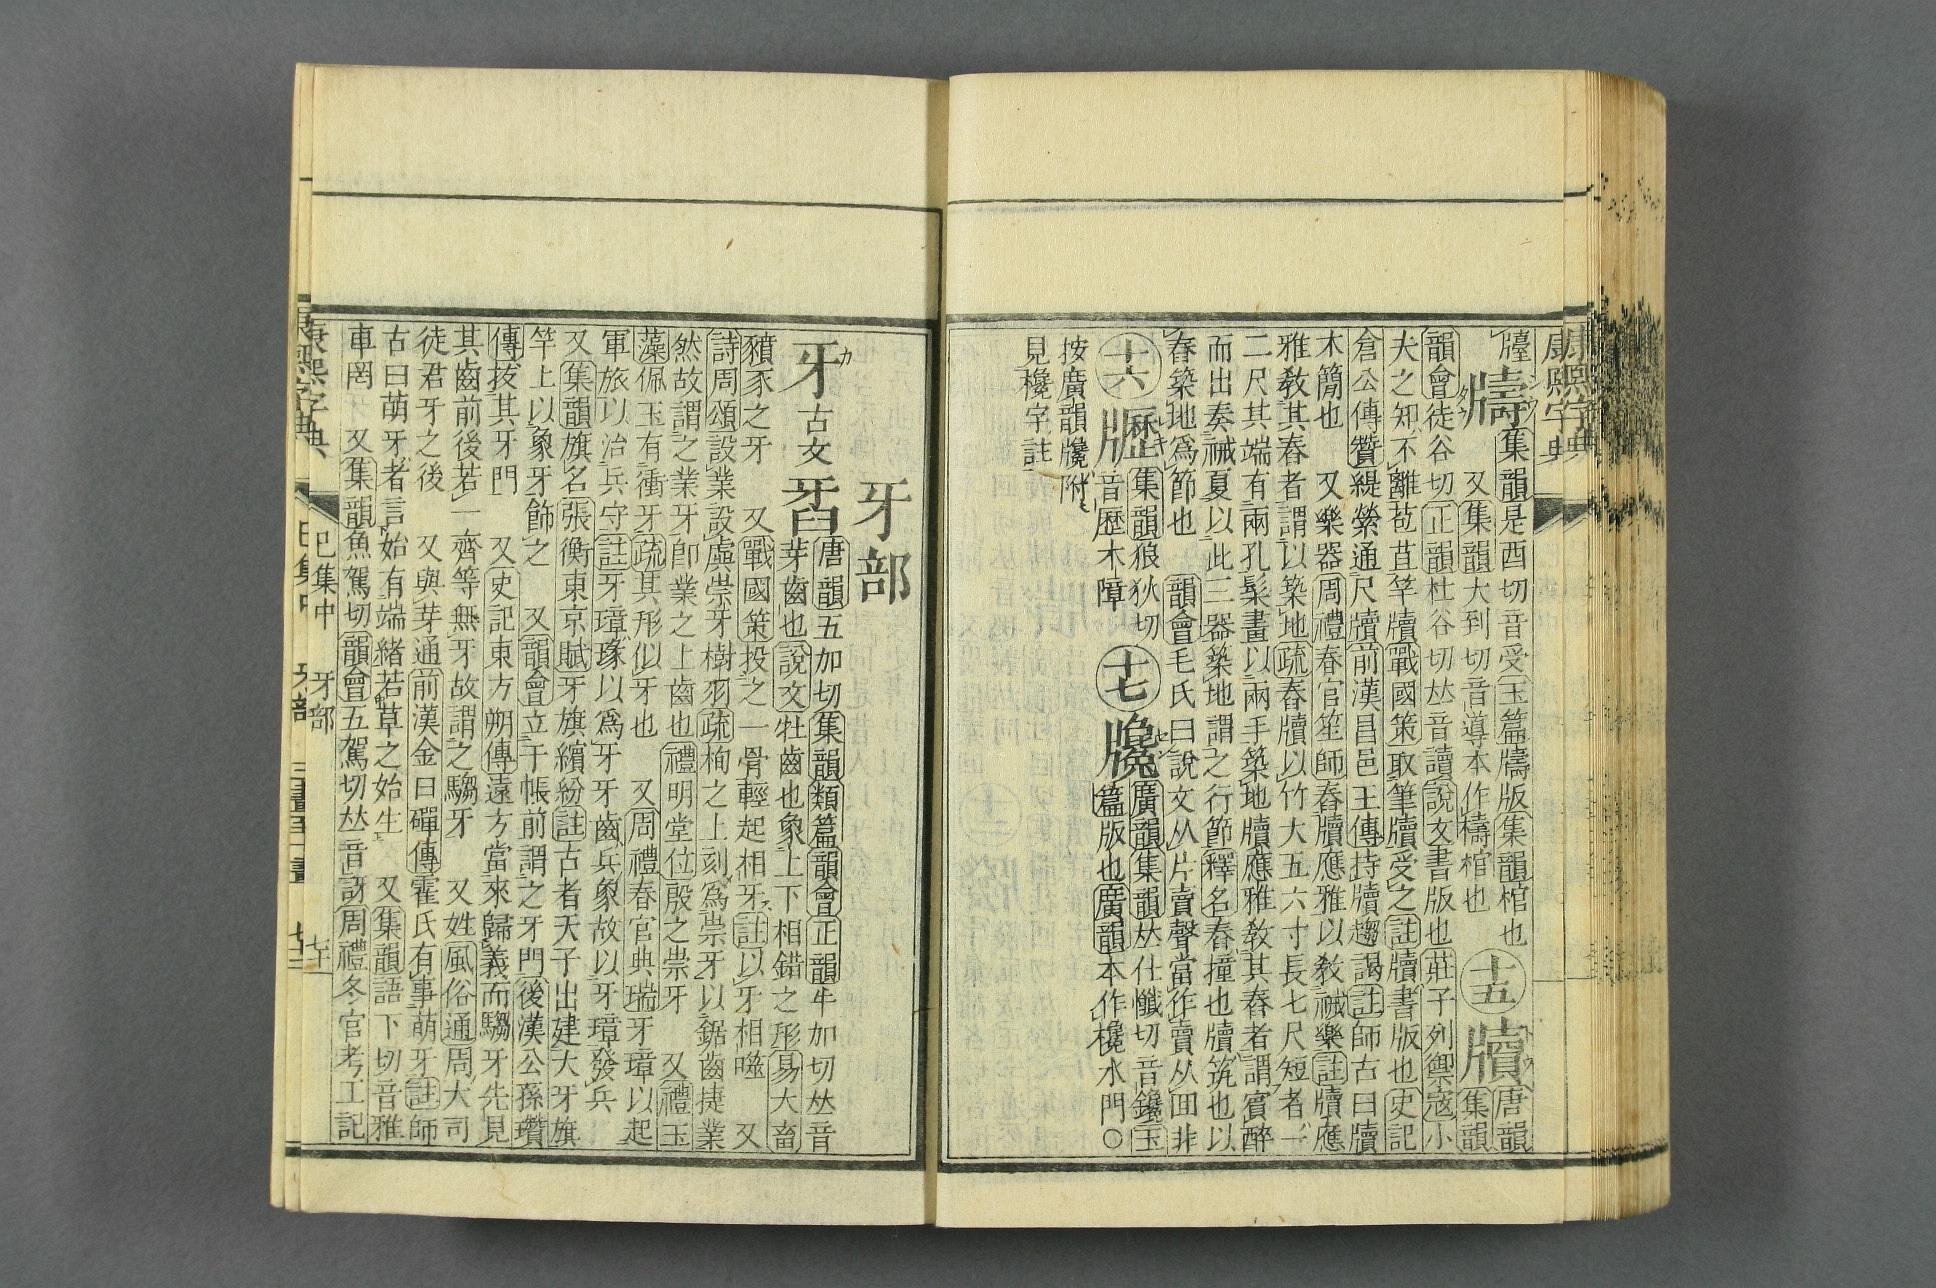 康熙字典
牘集韻是酉切音受玉篇牘版集韻棺也
又集韻大到切音導本作檮棺也
十五
牘
唐韻
集韻
韻會徒谷切正韻杜谷切𠀤音讀說文書版也莊子列禦寇小
夫之知不離苞苴竿牘戰國策取筆牘受之註牘書版也史記
倉公傳贊緹縈通尺牘前漢昌邑王傳持牘趨謁註師古曰牘
木簡也 又樂器周禮春官笙師舂牘應雅以敎祴樂註牘應
雅敎其舂者謂以築地疏舂牘以竹大五六寸長七尺短者一
二尺其端有兩孔髹畫以兩手築地牘應雅敎其舂者謂賓醉
而出奏祴夏以此三器築地謂之行節釋名舂撞也牘筑也以
舂築地爲節也 韻會毛氏曰說文从片賣聲當作賣从𡇒非
十六
𤗹
集韻狼狄切
音歷木障
十七
牖
廣韻集韻𠀤仕懺切音鑱玉
篇版也廣韻本作欃水門○
按廣韻牖附
見欃字註
牙部
牙
古文
𤘈
唐韻五加切集韻類篇韻會正韻牛加切𠀤音
芽齒也說文牡齒也象上下相錯之形易大畜
豶豕之牙 又戰國策投之一骨輕起相牙註以牙相噬 又
詩周頌設業設虡崇牙樹羽疏栒之上刻爲崇牙以鋸齒捷業
然故謂之業牙卽業之上齒也禮明堂位殷之崇牙 又禮玉
藻佩玉有衝牙疏其形似牙也 又周禮春官典瑞牙璋以起
軍旅以治兵守註牙璋瑑以爲牙牙齒兵象故以牙璋發兵
又集韻旗名張衡東京賦牙旗繽紛註古者天子出建大牙旗
竿上以象牙飾之 又韻會立于帳前謂之牙門後漢公孫瓚
傳拔其牙門 又史記東方朔傳遠方當來歸義而騶牙先見
其齒前後若一齊等無牙故謂之騶牙 又姓風俗通周大司
徒君牙之後 又與芽通前漢金日磾傳霍氏有事萌牙註師
古曰萌牙者言始有端緒若草之始生 又集韻語下切音雅
車罔 又集韻魚駕切韻會五駕切𠀤音訝周禮冬官考工記
康熙字典
巳集中
牙部
七十一